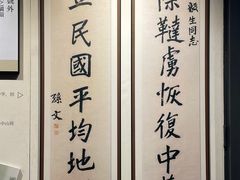 毅生同志
除韃虜恢復中
立民國平均地
孫文
號外